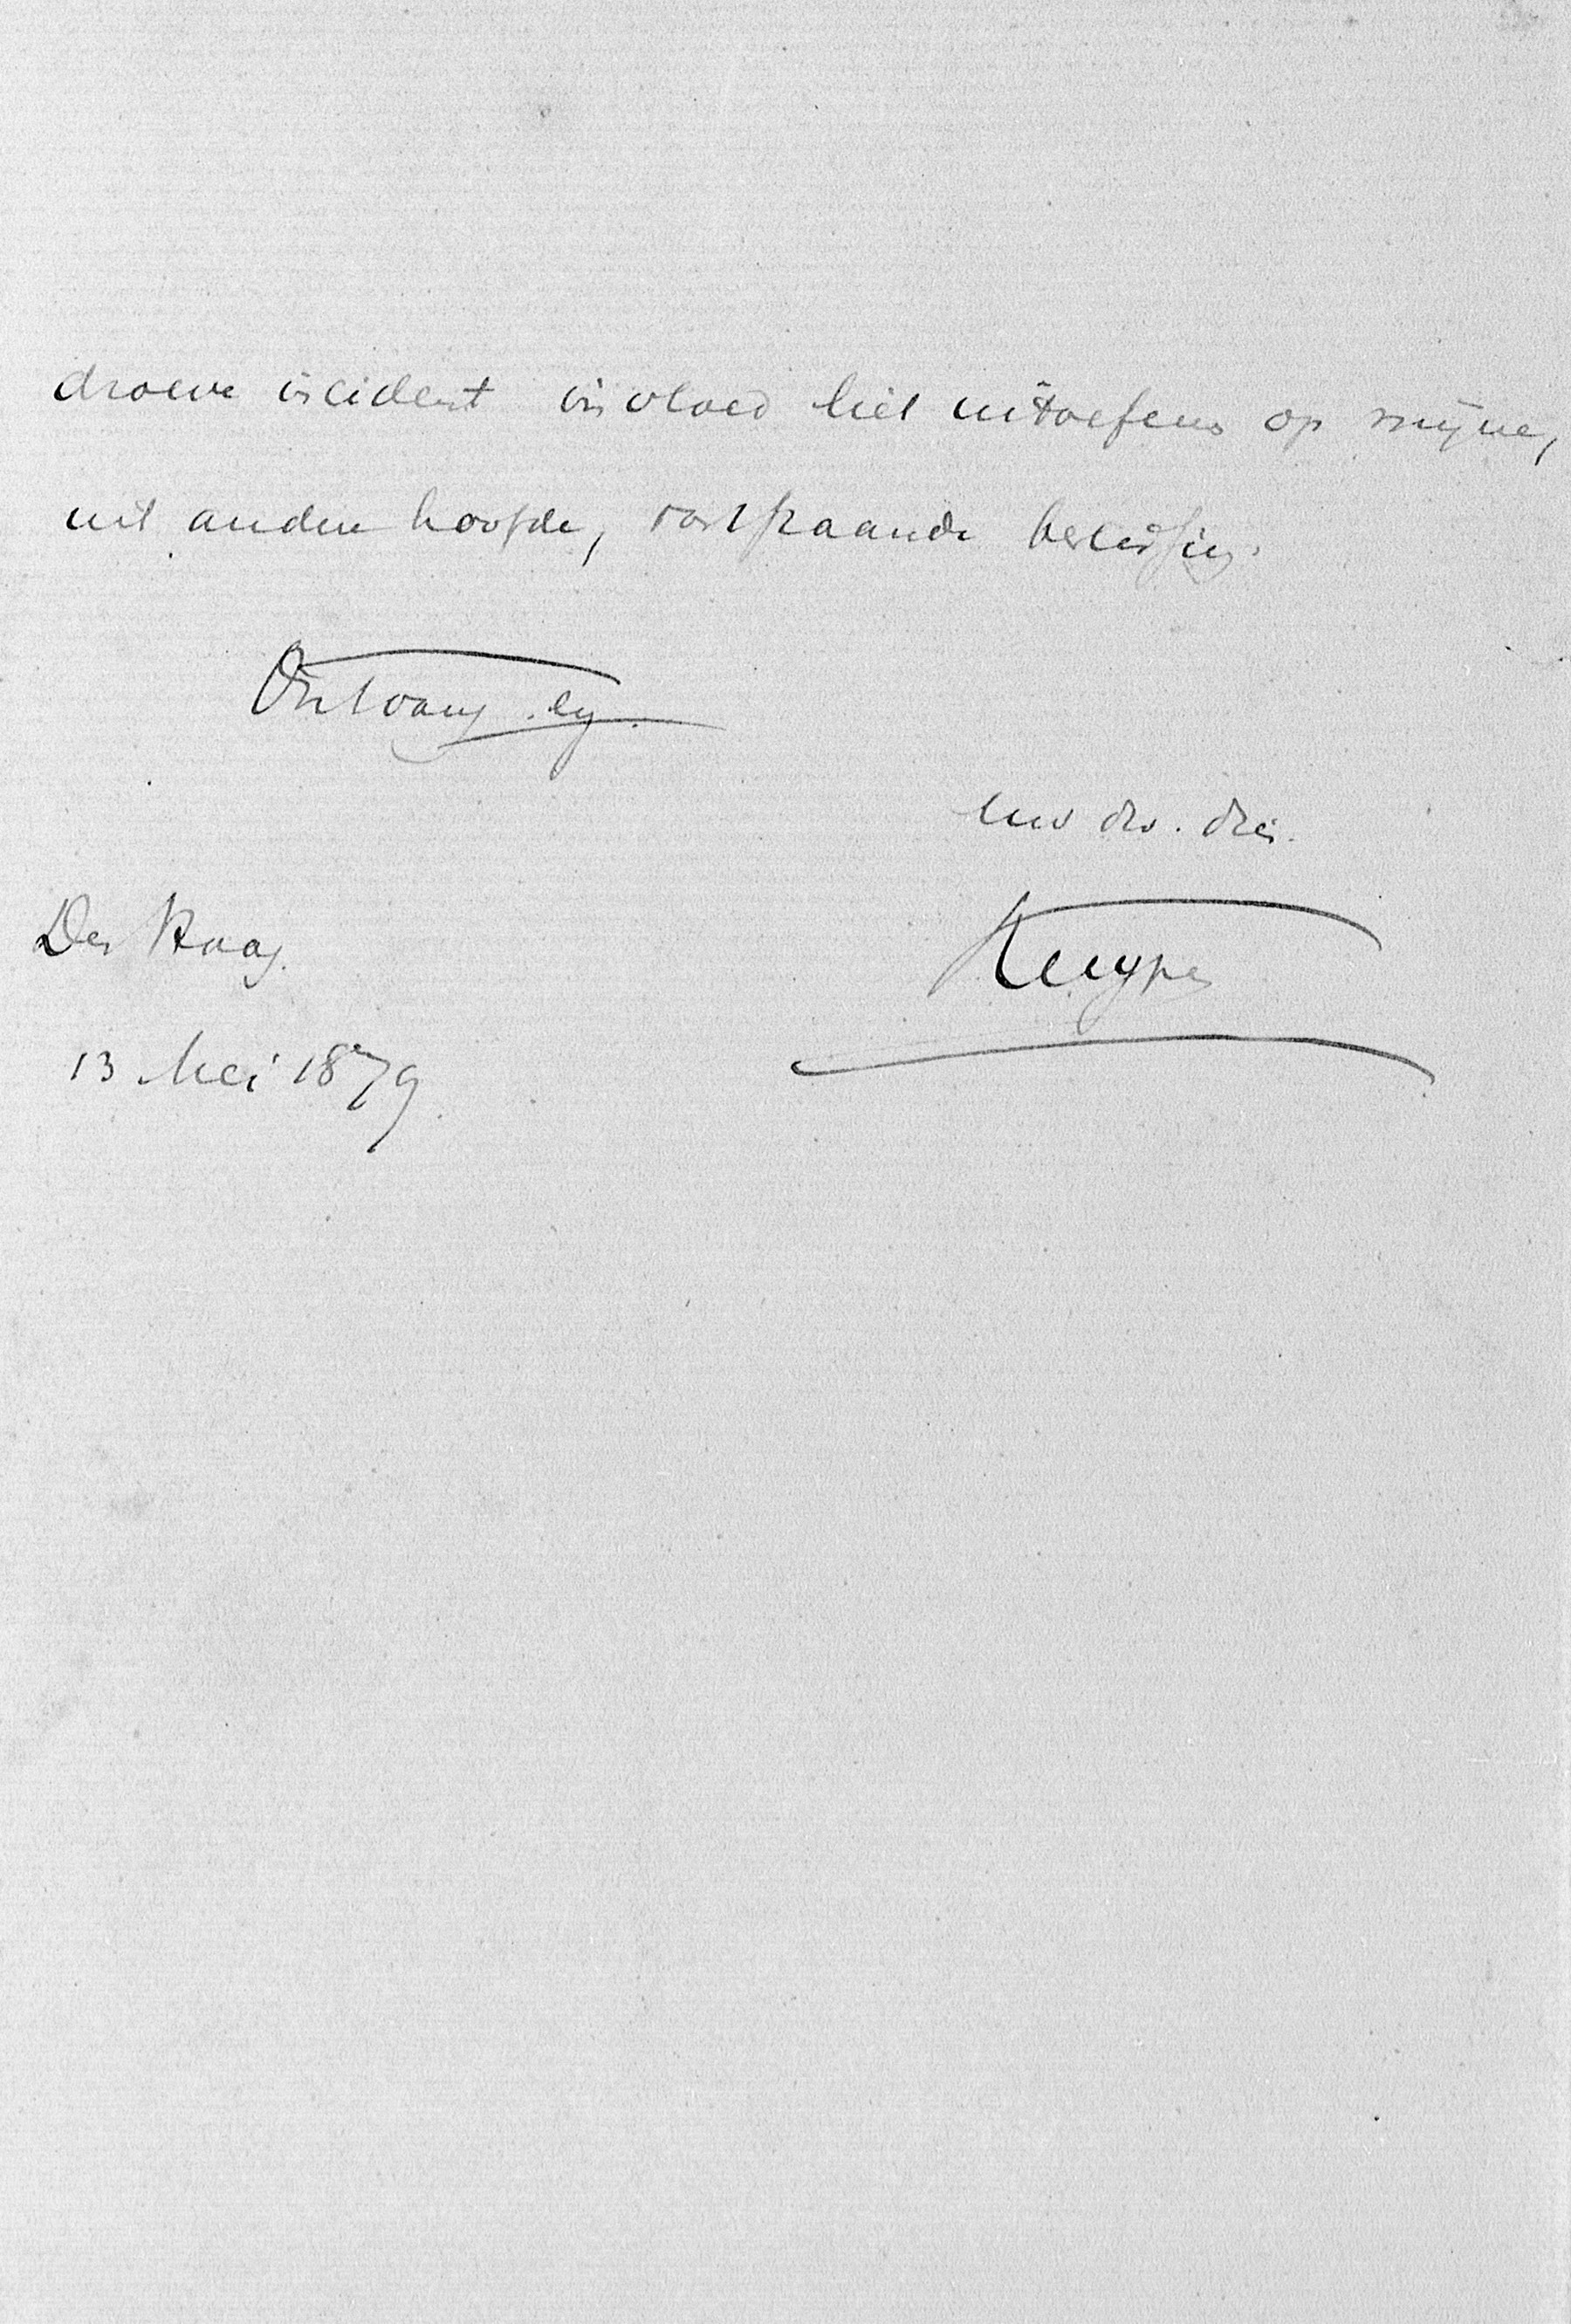 droeve incident invloed liet uitoefenen op mijne,
uit anderen hoofde, vaststaande beslissing.
Ontvang. enz.
Uw dw. dr.
Den Haag.
Kuyper
13 Mei 1879.